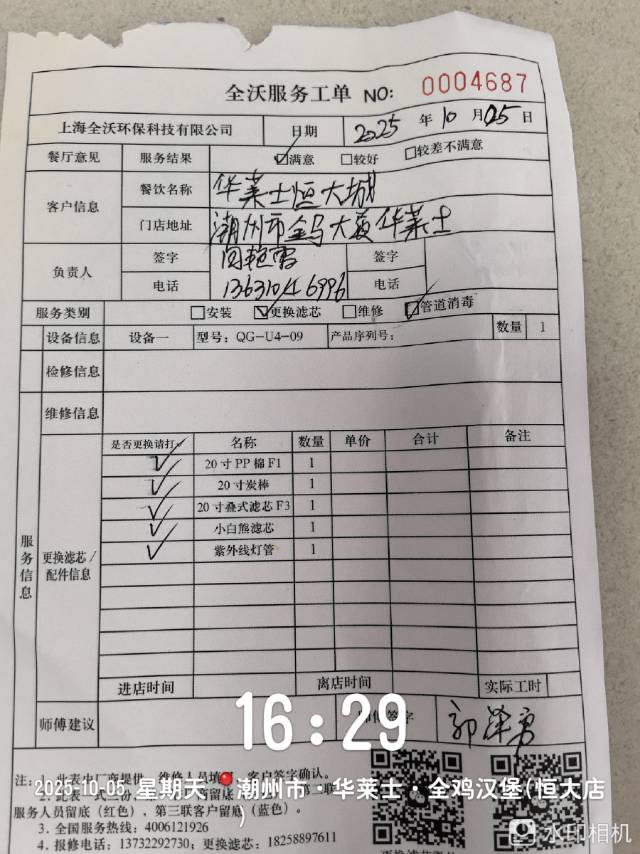 全沃服务工单 NO: 0004687
上海全沃环保科技有限公司 日期 2025 年 10 月 05 日
餐厅意见 服务结果 ☑满意 □较好 □较差不满意
客户信息 餐饮名称 华莱士恒大城
门店地址 潮州市金马大厦华莱士
负责人 签字 签字
电话 电话
服务类别 □安装 ☑更换滤芯 □维修 ☑管道消毒
设备信息 设备一 型号: QG-U4-09 产品序列号: 数量 1
检修信息
维修信息
服务信息
更换滤芯/配件信息
是否更换请打✓ 名称 数量 单价 合计 备注
✓ 20寸PP棉F1 1
✓ 20寸炭棒 1
✓ 20寸叠式滤芯F3 1
✓ 小白熊滤芯 1
✓ 紫外线灯管 1
进店时间 离店时间 实际工时
师傅建议 签字 郭泽勇
16:29
注: 1. 此表由厂商提供, 维修人员填 客户签字确认。
2025-10-05 星期天 潮州市·华莱士·全鸡汉堡(恒大店)
2. 此表一式三份,
服务人员留底(红色), 第三联客户留底(蓝色)。
3. 全国服务热线: 4006121926
4. 报修电话: 13732292730; 18258897611
水印相机